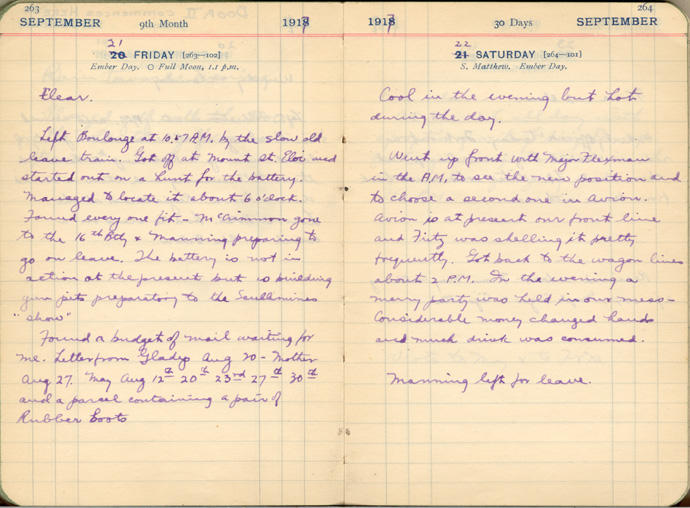 263
SEPTEMBER 9th Month 1917
21
20 FRIDAY [263—102]
Ember Day. ○ Full Moon, 1.1 p.m.
Clear.
Left Boulogne at 10.57 A.M. by the slow old
leave train. Got off at Mount St. Eloi and
started out on a hunt for the battery.
Managed to locate it about 6 o'clock.
Found every one fit - McCrimmon gone
to the 16th Bty & Manning preparing to
go on leave. The battery is not in
action at the present but is building
gun pits preparatory to the
"show"
Found a budget of mail waiting for
me. Letter from Gladys Aug 20 - Mother
Aug 27. May Aug 12th 20th 23rd 27th 30th
and a parcel containing a pair of
Rubber boots
264
1917 30 Days SEPTEMBER
22
21 SATURDAY [264—101]
S. Matthew. Ember Day.
Cool in the evening but hot
during the day.
Went up front with Major Flexman
in the A.M. to see the new position and
to choose a second one in Avion.
Avion is at present our front line
and Fritz was shelling it pretty
frequently. Got back to the wagon lines
about 2 P.M. In the evening a
merry party was held in our mess -
Considerable money changed hands
and much drink was consumed.
Manning left for leave.